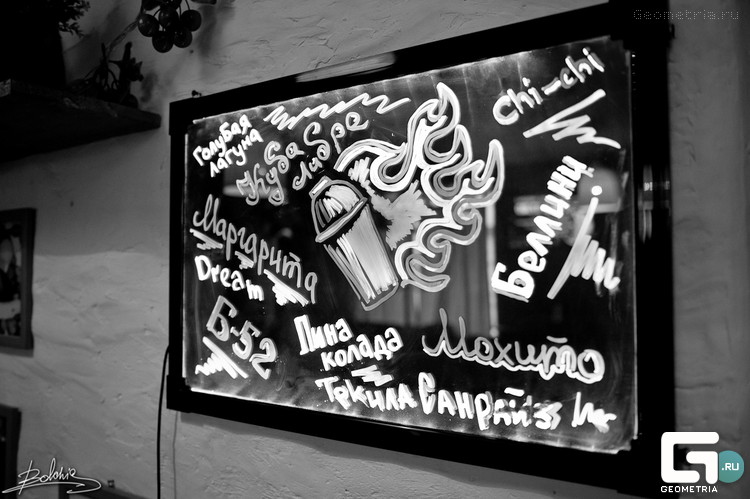 Geometria.ru
Голубая
лагуна
Куба
либре
Chi-chi
Маргарита
Dream
Беллини
Б-52
Пина
колада
Мохито
Текила Санрайз
G
.RU
GEOMETRIA